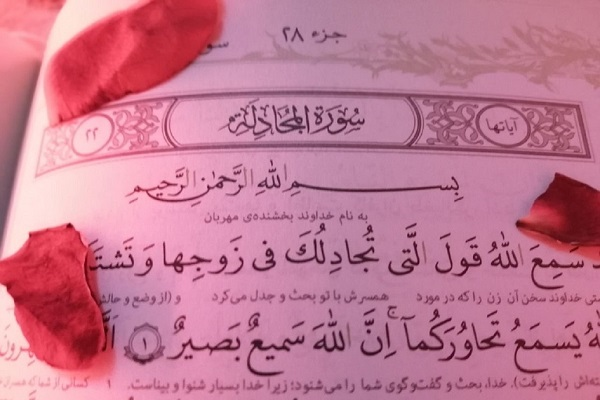 جزء ۲۸
سُورَةُ المُجَادِلَةِ آیاتها ۲۲
بِسْمِ اللهِ الرَّحمٰنِ الرَّحیمِ
به نام خداوند بخشنده‌ی مهربان
سَمِعَ اللهُ قَولَ الَّتی تُجادِلُكَ فی زَوجِها وَ تَشتَ
خداوند سخن آن زن را که در مورد همسرش با تو بحث و جدل می‌کرد و (از وضع و حالش
یَسمَعُ تَحاوُرَکُمآ ۚ اِنَّ اللهَ سَمیعٌ بَصیرٌ ۱
را پذیرفت). خدا، بحث و گفت‌وگوی شما را می‌شنود؛ زیرا خدا بسیار شنوا و بیناست. ۱ کسانی از شما که